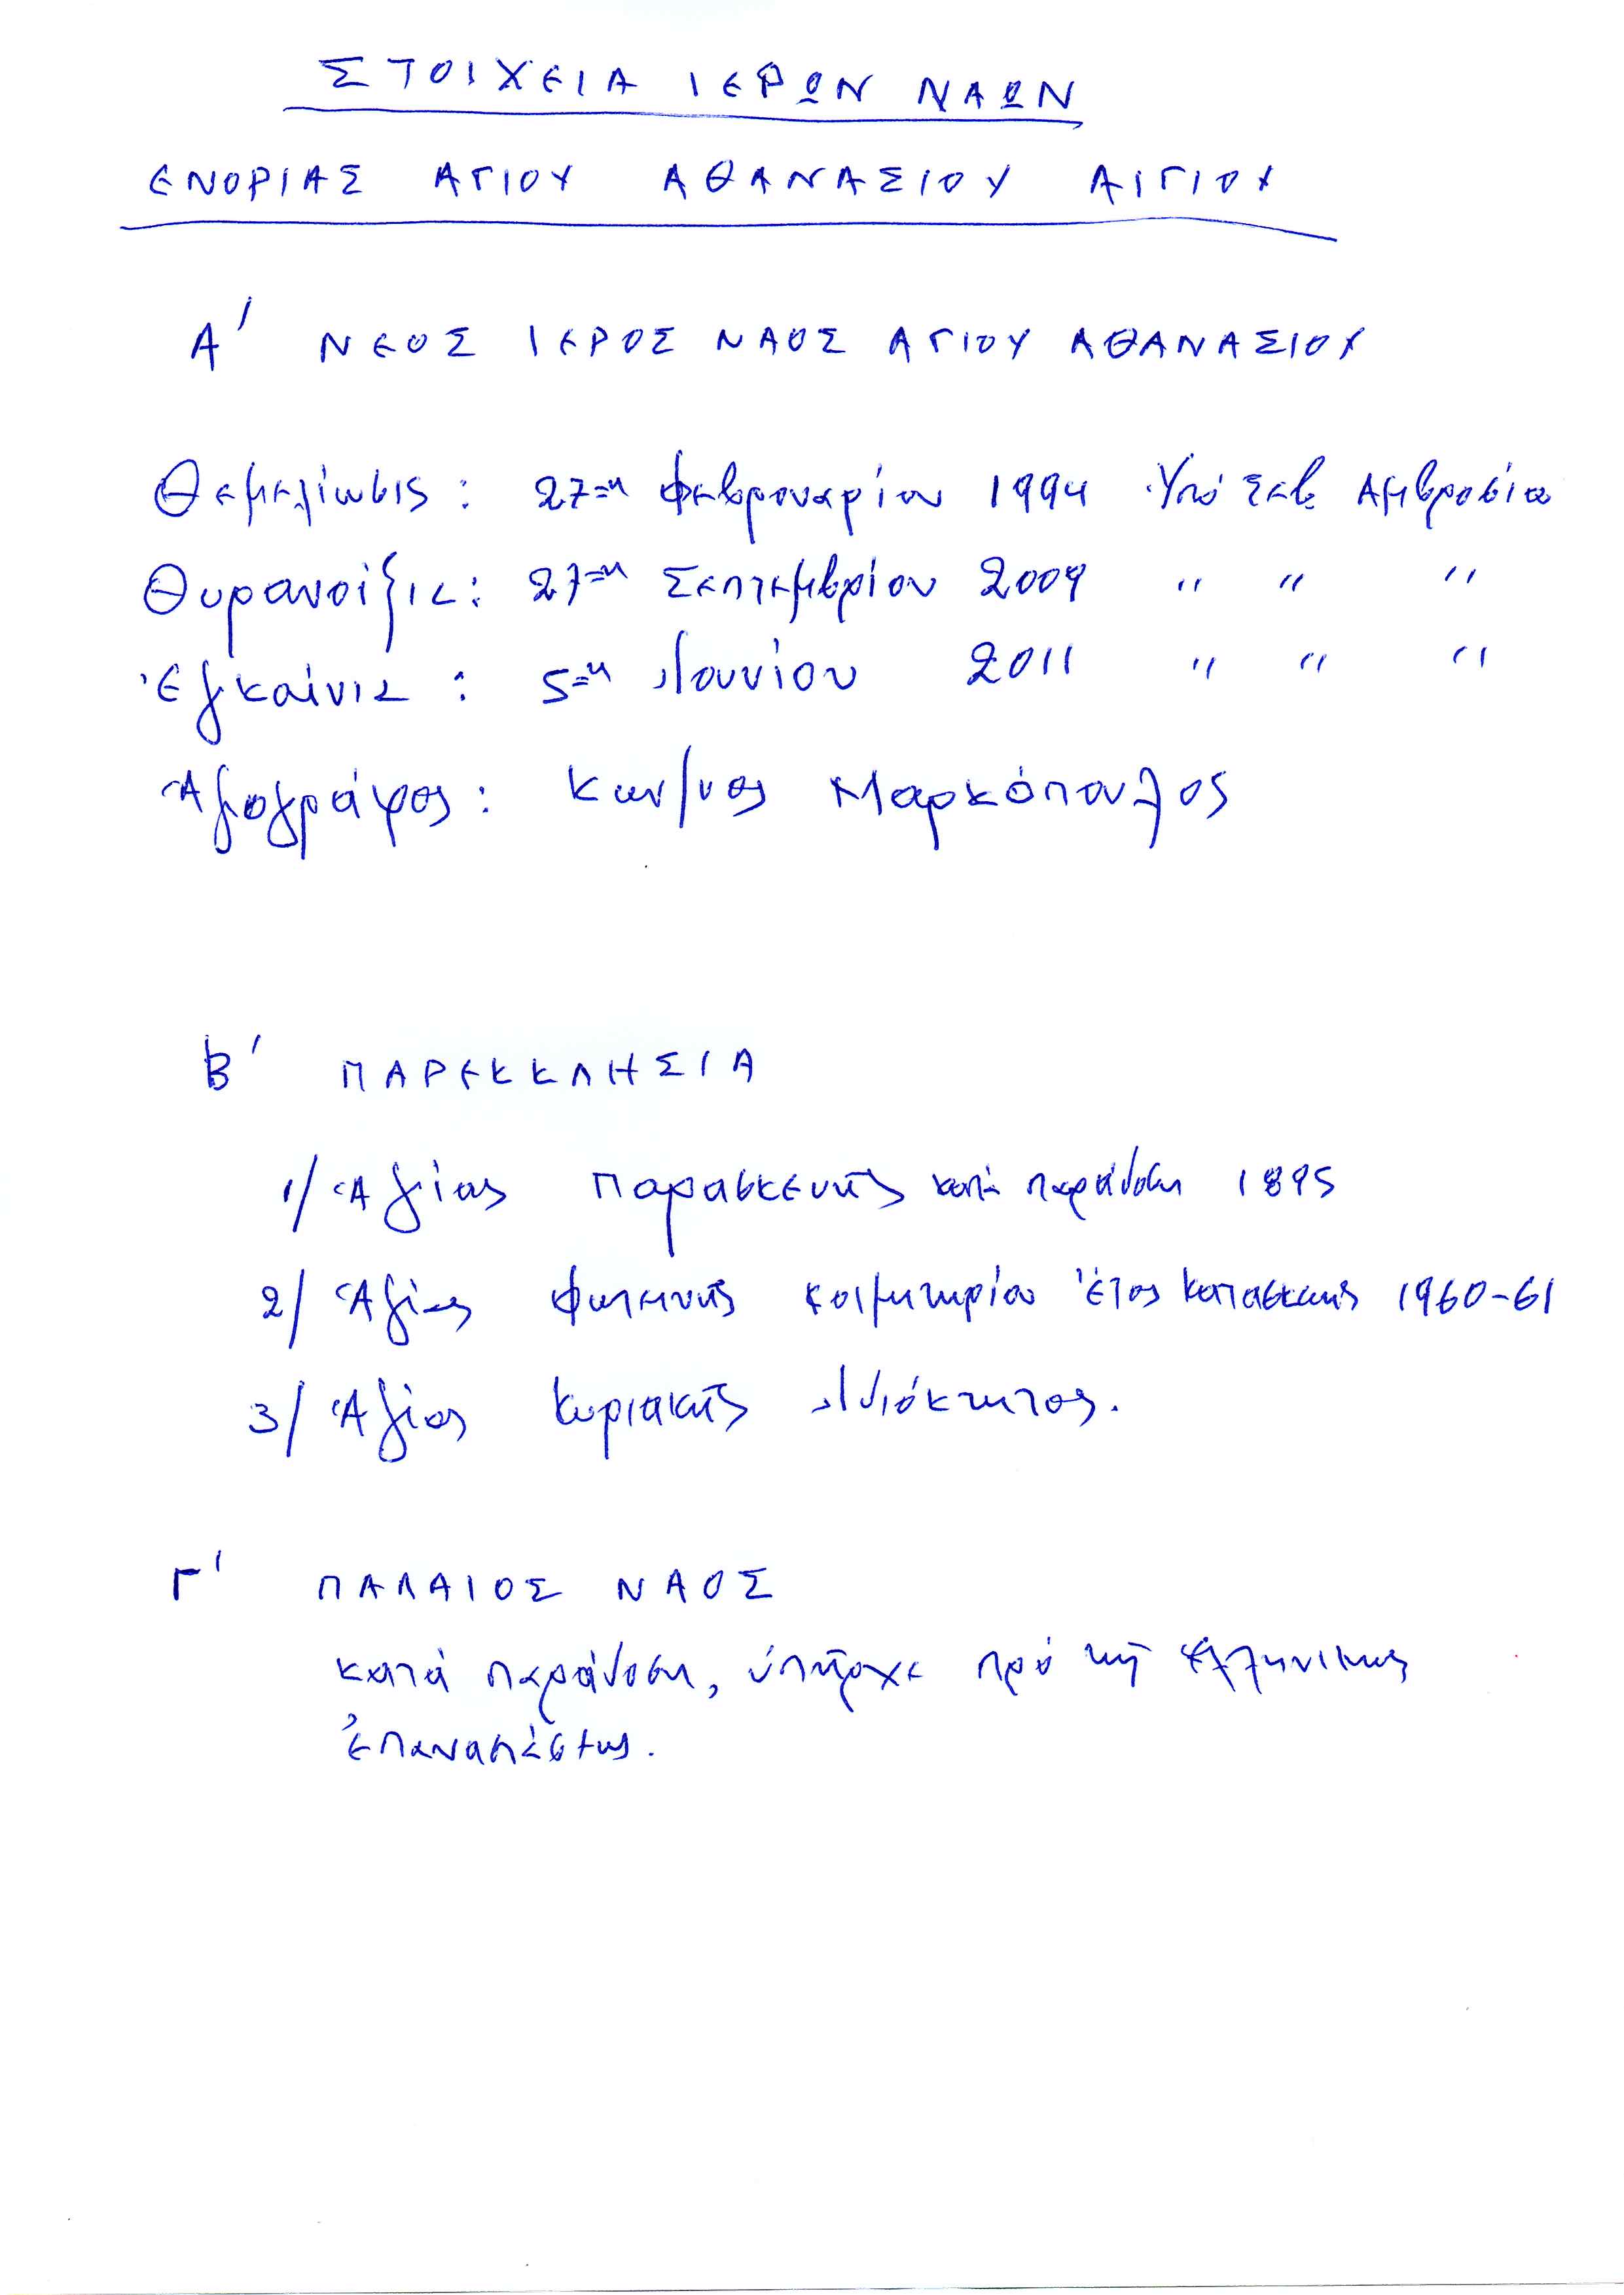 ΣΤΟΙΧΕΙΑ ΙΕΡΩΝ ΝΑΩΝ
ΕΝΟΡΙΑΣ ΑΓΙΟΥ ΑΘΑΝΑΣΙΟΥ ΑΙΓΙΟΥ
Α' ΝΕΟΣ ΙΕΡΟΣ ΝΑΟΣ ΑΓΙΟΥ ΑΘΑΝΑΣΙΟΥ
Θεμελίωσις: 27η Φεβρουαρίου 1994 Ὑπό Σεβ Ἀμβροσίου
Θυρανοίξις: 27η Σεπτεμβρίου 2009 " " "
Ἐγκαίνια: 5η Ἰουνίου 2011 " " "
Ἁγιογράφος: Κων/νος Μαρκόπουλος
Β' ΠΑΡΕΚΚΛΗΣΙΑ
1/ Ἁγίας Παρασκευῆς κατά παράδοση 1895
2/ Ἁγίας Φωτεινῆς Κοιμητηρίου Ἔτος Κατασκευῆς 1960-61
3/ Ἁγίας Κυριακῆς Ἰδιόκτητος.
Γ' ΠΑΛΑΙΟΣ ΝΑΟΣ
κατά παράδοση, ὑπῆρχε πρό τῆς Ἑλληνικῆς
Ἐπαναστάσεως.